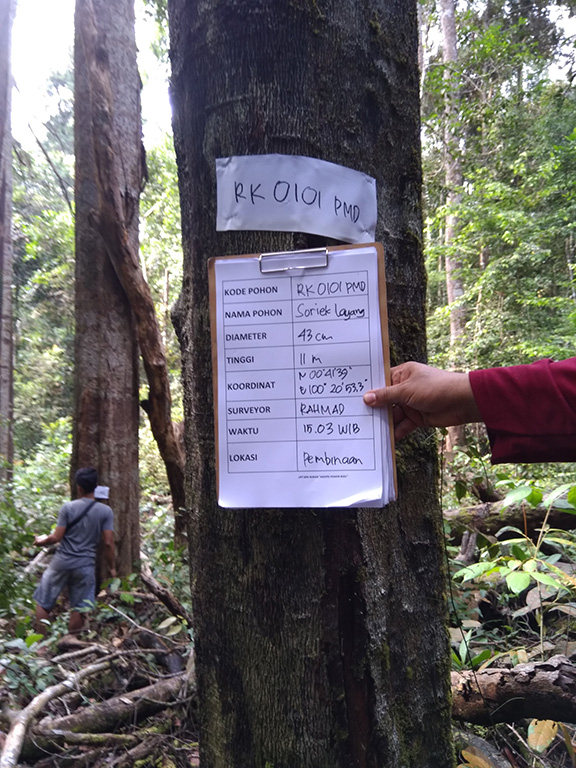 RK 0101 PMD
KODE POHON RK 0101 PMD
NAMA POHON Soriek Layang
DIAMETER 43 cm
TINGGI 11 m
KOORDINAT N 00°41'39"
E 100° 20' 53.3"
SURVEYOR RAHMAD
WAKTU 15.03 WIB
LOKASI Pembinaan